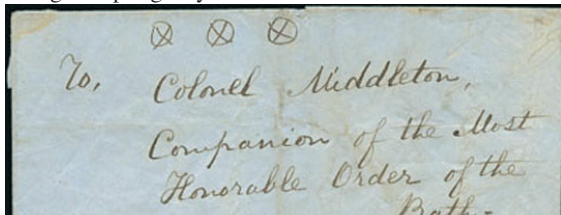 ⊗ ⊗ ⊗
To,
Colonel Middleton,
Companion of the Most
Honorable Order of the
Bath-